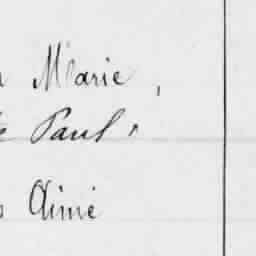 Marie,
Paul,
Aimé